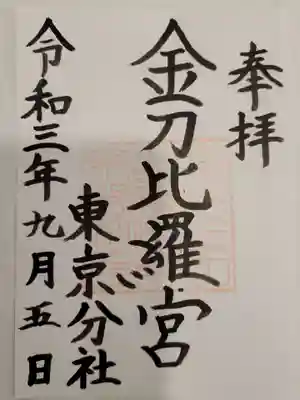 奉拝
金刀比羅宮
東京分社
令和三年九月五日